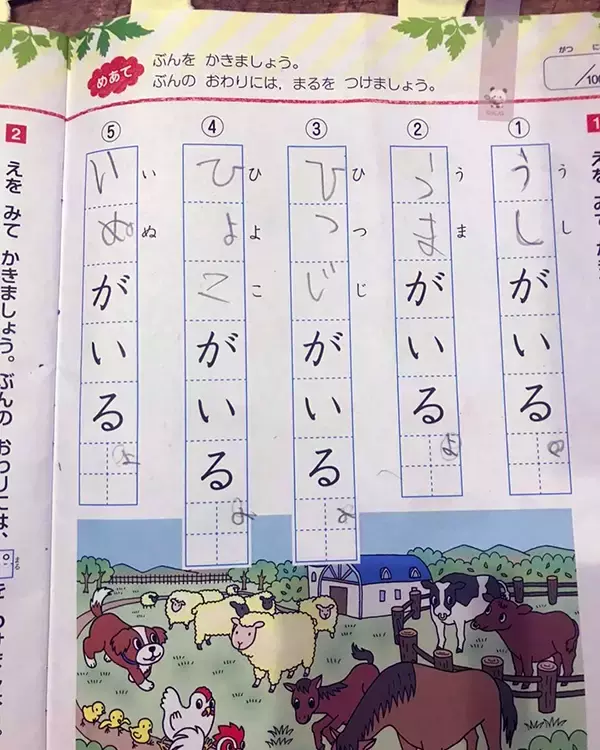 めあて
ぶんを かきましょう。
ぶんの おわりには、まるを つけましょう。
がつ に
/100
1
① うしがいる
うし
② うまがいる
うま
③ ひつじがいる
ひつじ
④ ひよこがいる
ひよこ
⑤ いぬがいる
いぬ
2
えを みて かきましょう。ぶんの おわりには、
まる